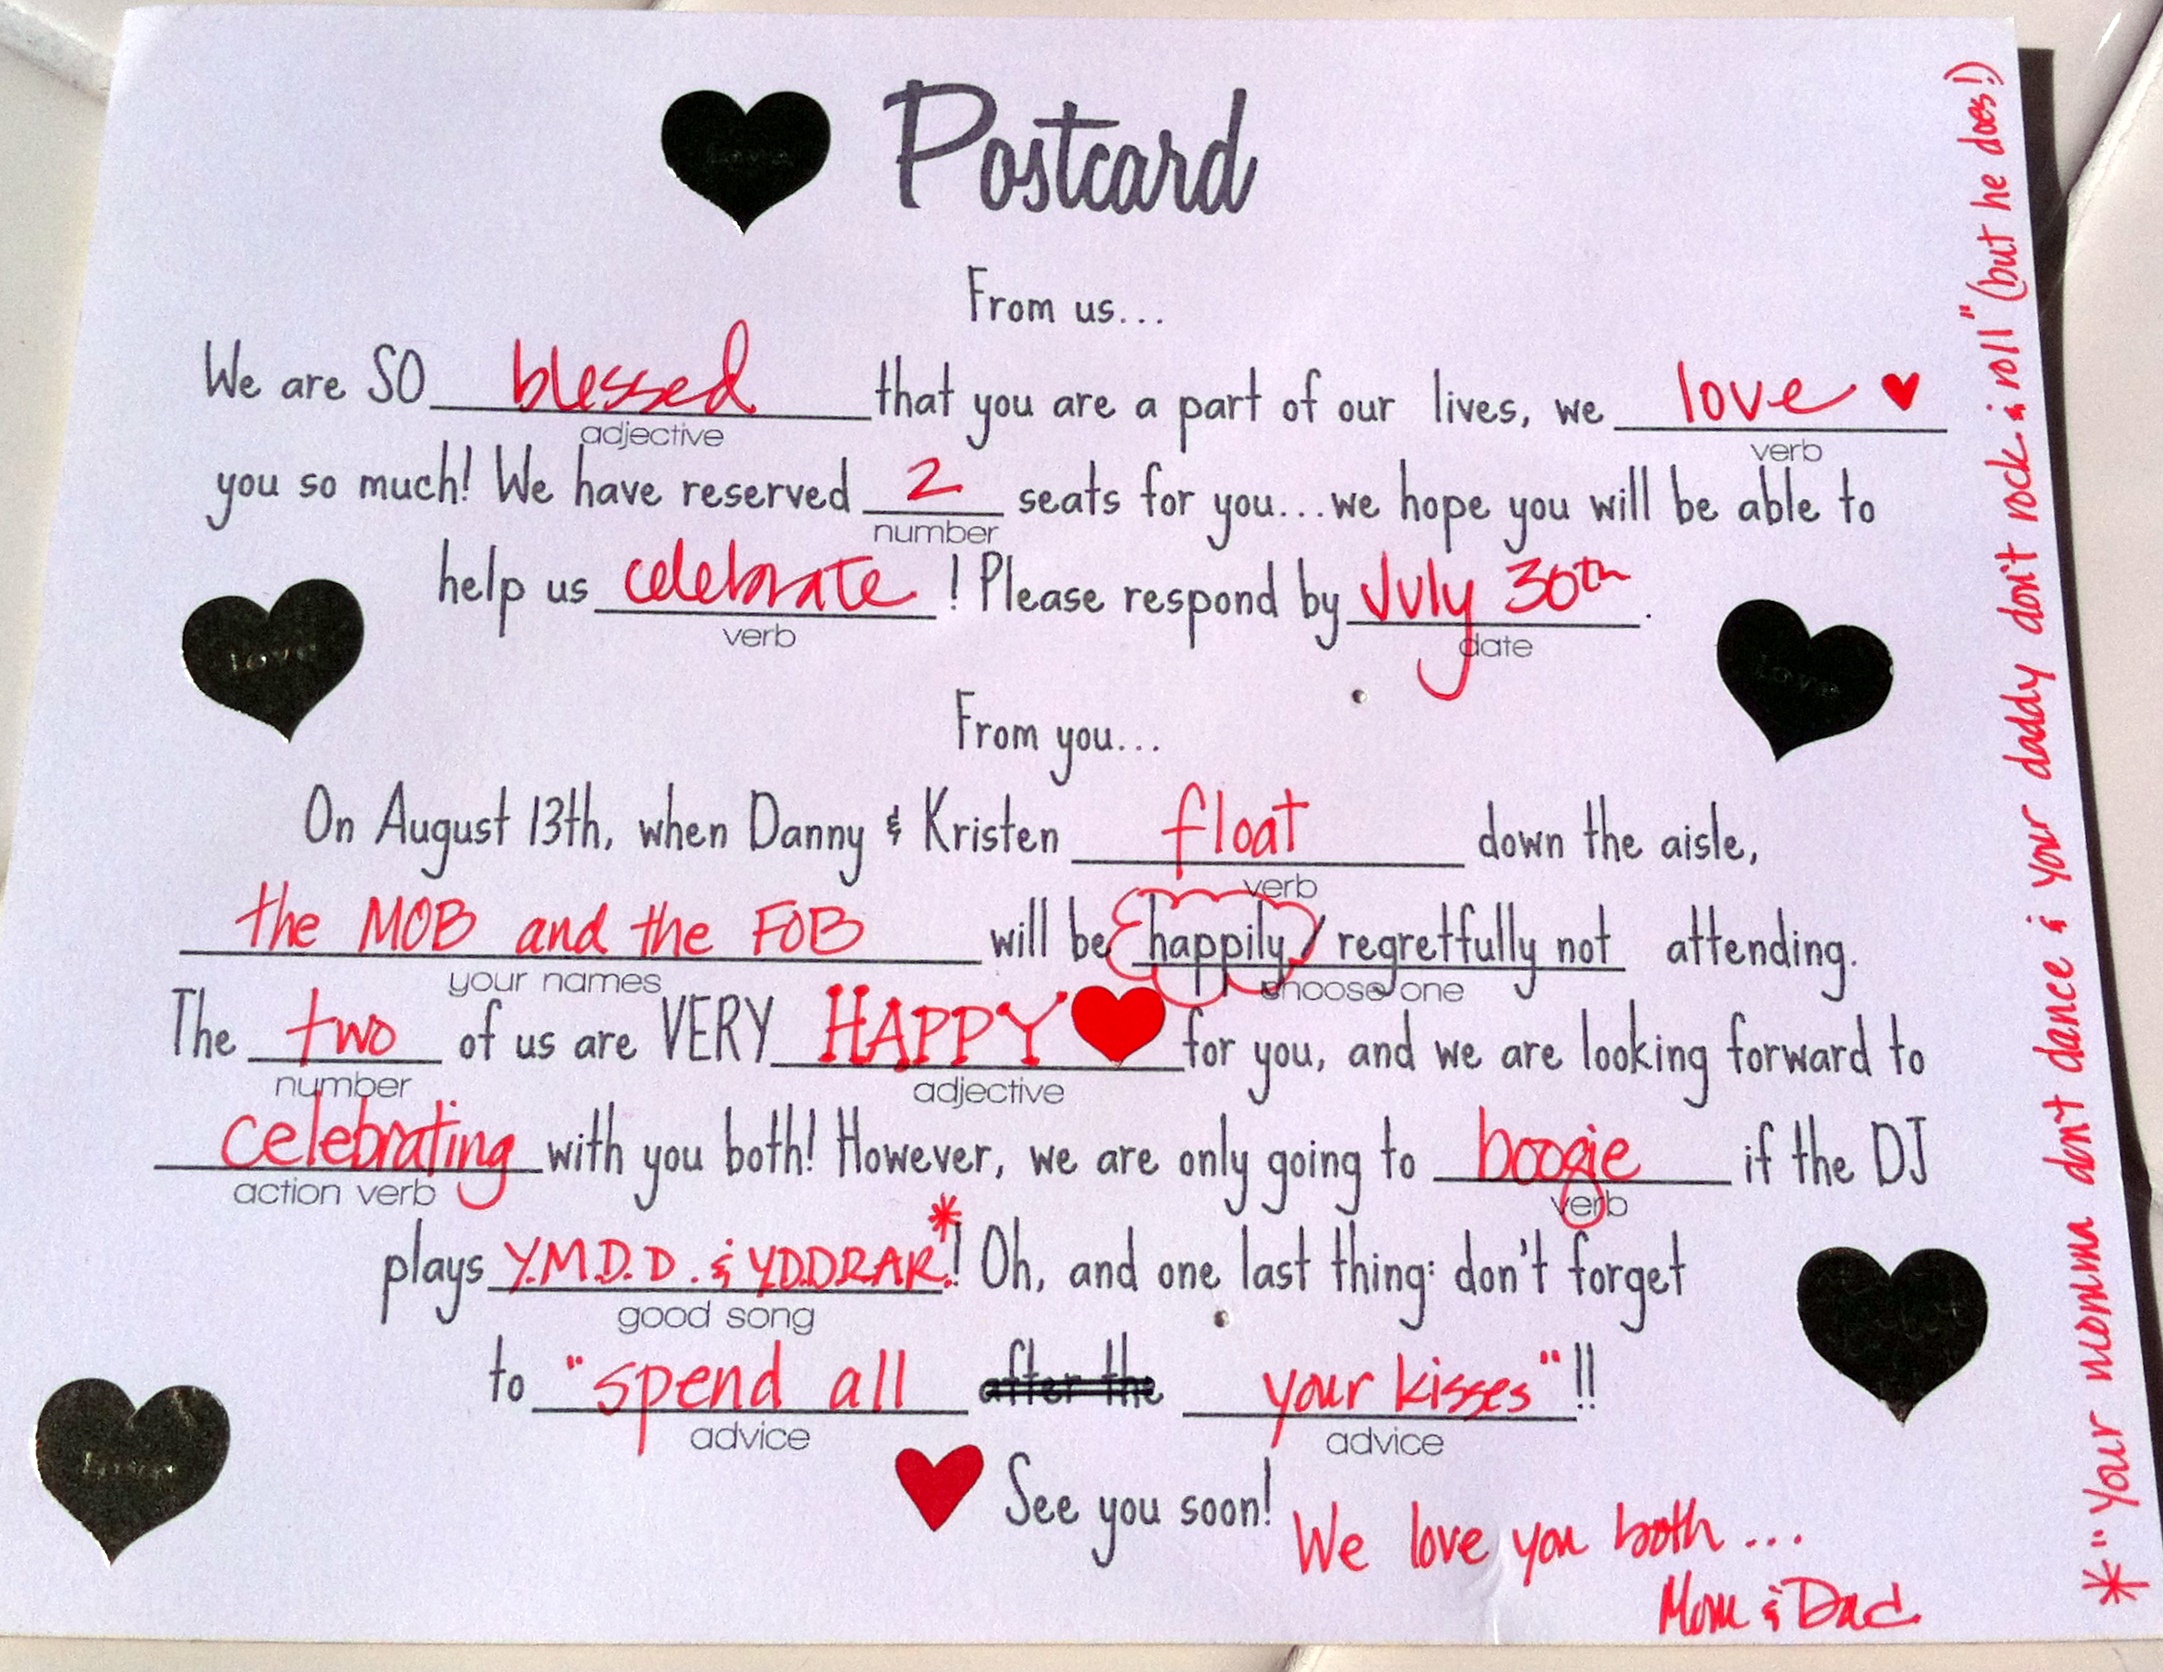 Love
Postcard
From us...
We are SO blessed that you are a part of our lives, we love
adjective
verb
you so much! We have reserved 2 seats for you...we hope you will be able to
number
help us celebrate ! Please respond by July 30th.
verb
date
Love
Love
From you...
On August 13th, when Danny & Kristen float down the aisle,
verb
the MOB and the FOB will be happily / regretfully not attending.
your names
choose one
The two of us are VERY HAPPY for you, and we are looking forward to
number
adjective
celebrating with you both! However, we are only going to boogie if the DJ
action verb
verb
plays Y.M.D.D. & Y.D.DRAR.*! Oh, and one last thing: don't forget
good song
to "spend all after the your kisses"!!
advice
advice
Love
See you soon!
We love you both...
Mom & Dad
*"Your momma don't dance & your daddy don't rock & roll" (but he does!)